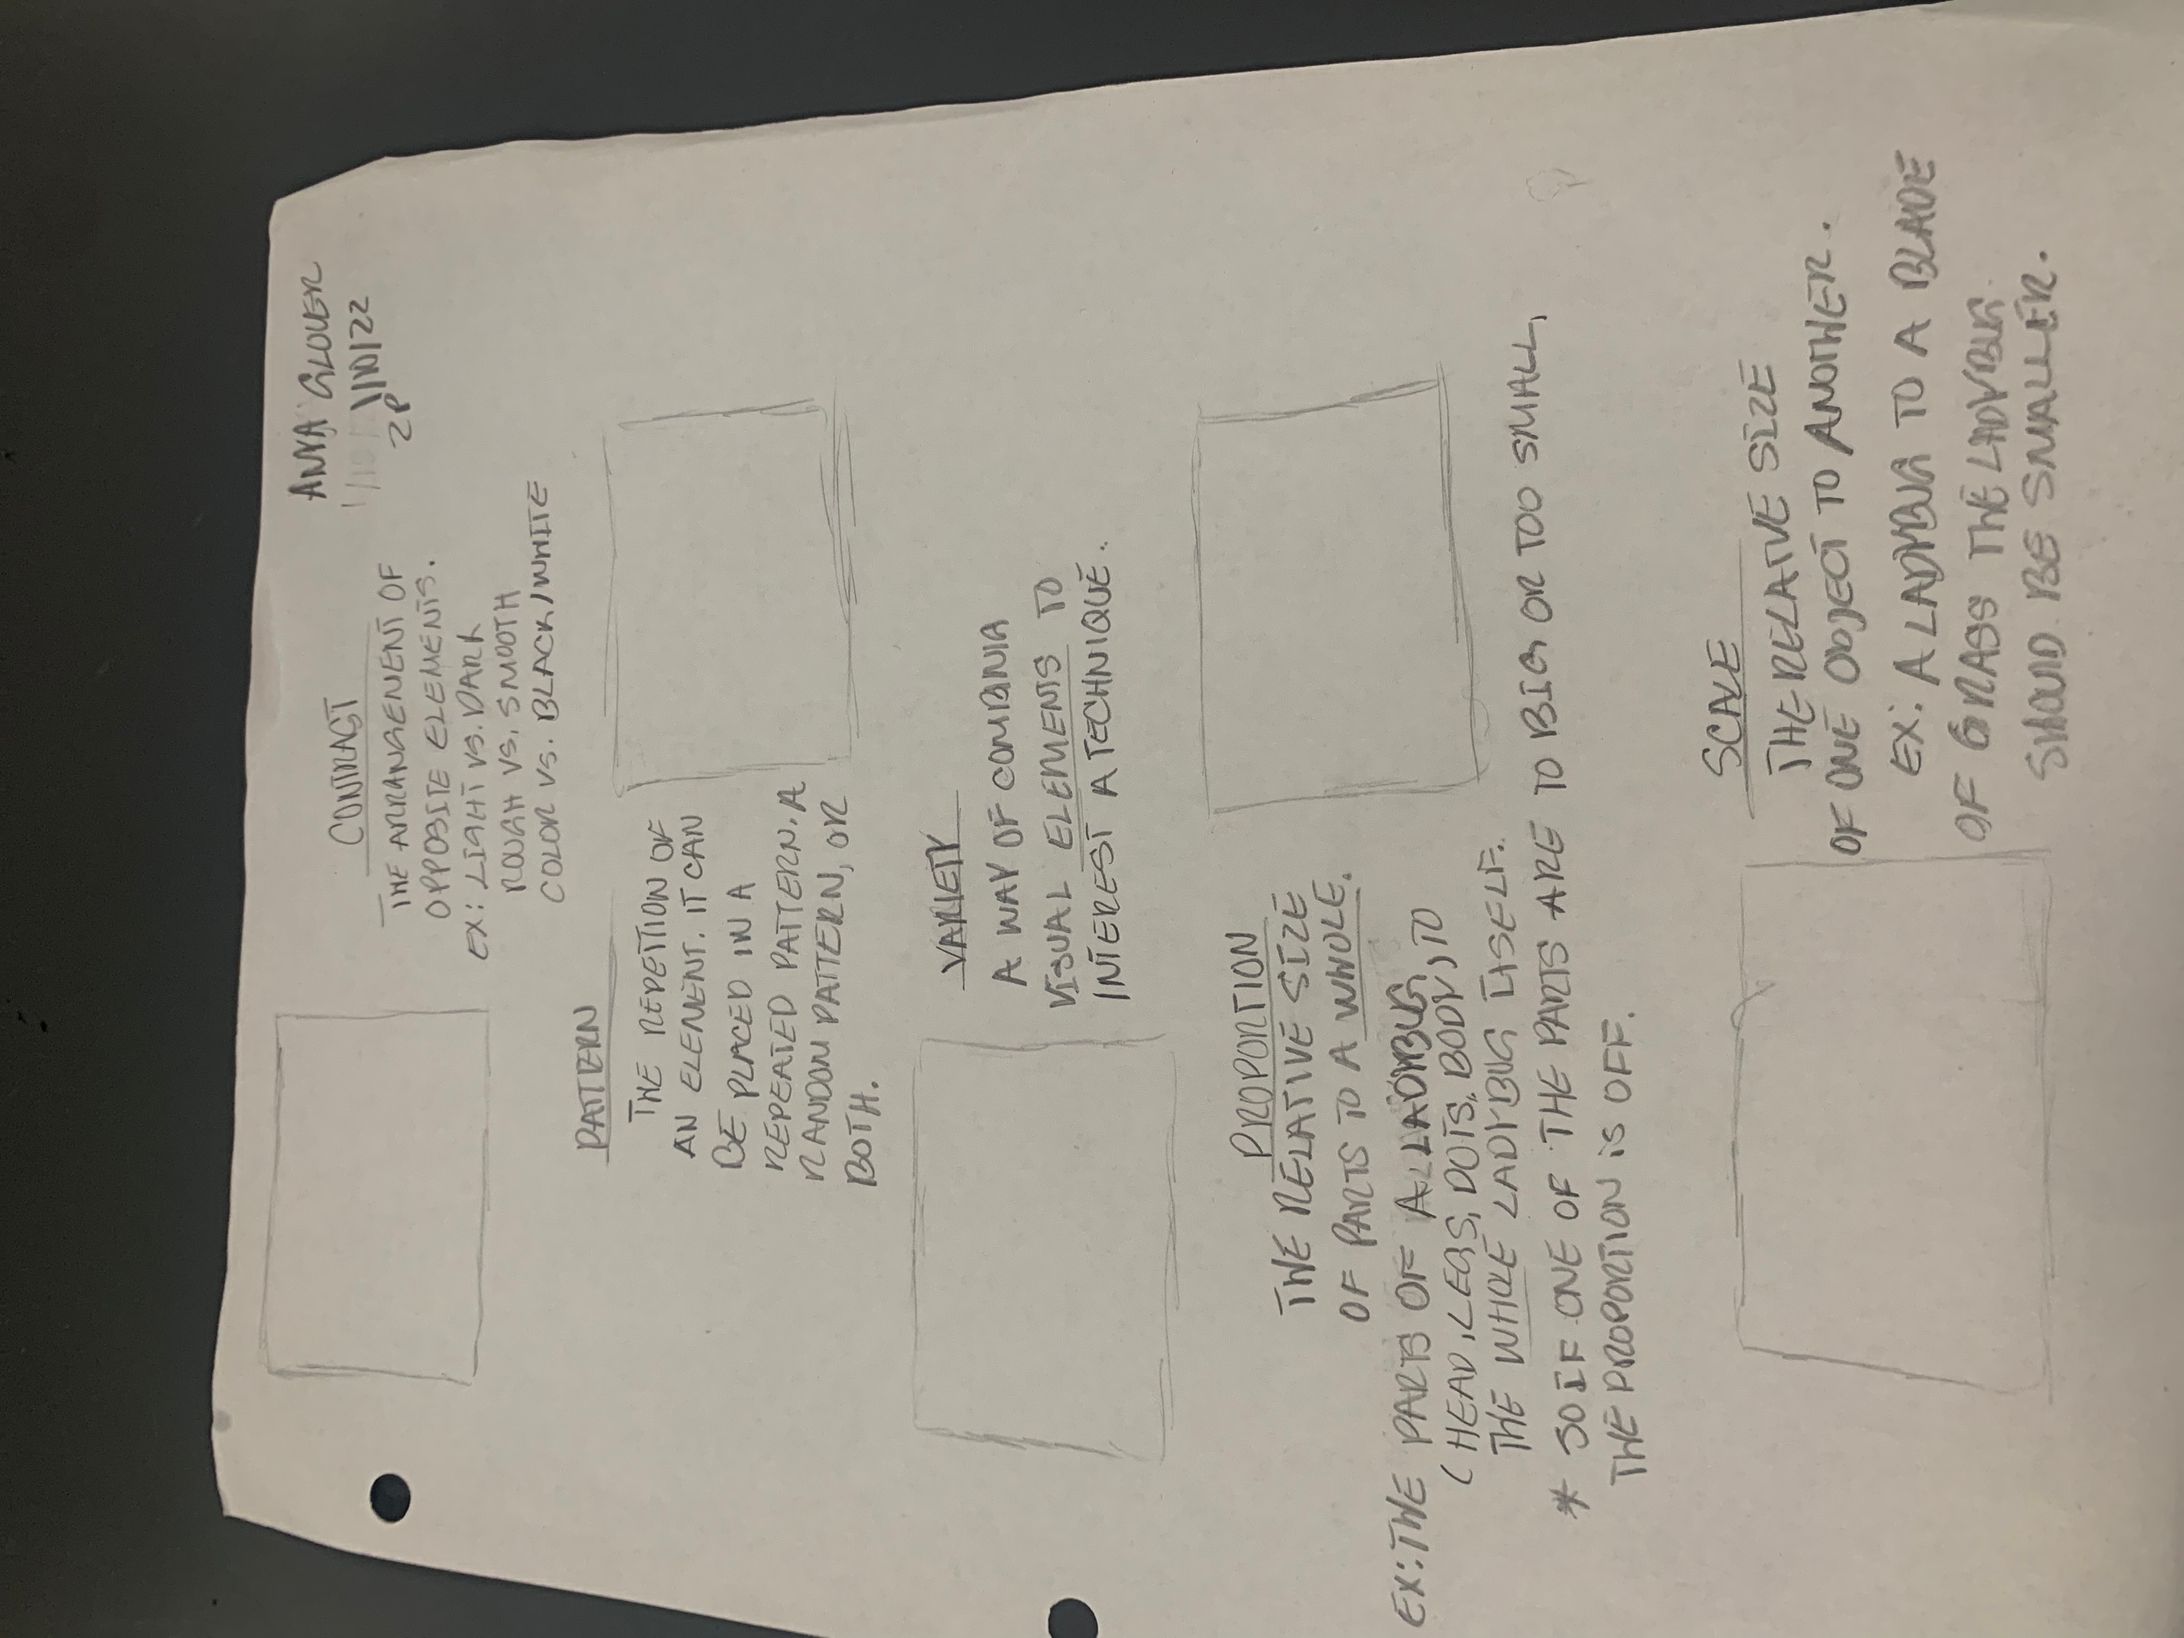 ANYA GLOVER
1/10/22
2P
CONTRAST
THE ARRANGEMENT OF
OPPOSITE ELEMENTS.
EX: LIGHT VS. DARK
ROUGH VS. SMOOTH
COLOR VS. BLACK/WHITE
PATTERN
THE REPETITION OF
AN ELEMENT. IT CAN
BE PLACED IN A
REPEATED PATTERN. A
RANDOM PATTERN, OR
BOTH.
VARIETY
A WAY OF COMBINIG
VISUAL ELEMENTS TO
INTEREST A TECHNIQUE.
PROPORTION
THE RELATIVE SIZE
OF PARTS TO A WHOLE.
EX: THE PARTS OF A LADYBUG
(HEAD, LEGS, DOTS, BODY,) TO
THE WHOLE LADYBUG ITSELF.
* SO IF ONE OF THE PARTS ARE TO BIG OR TOO SMALL,
THE PROPORTION IS OFF.
SCALE
THE RELATIVE SIZE
OF ONE OBJECT TO ANOTHER.
EX: A LADYBUG TO A BLADE
OF GRASS THE LADYBUG
SHOULD BE SMALLER.